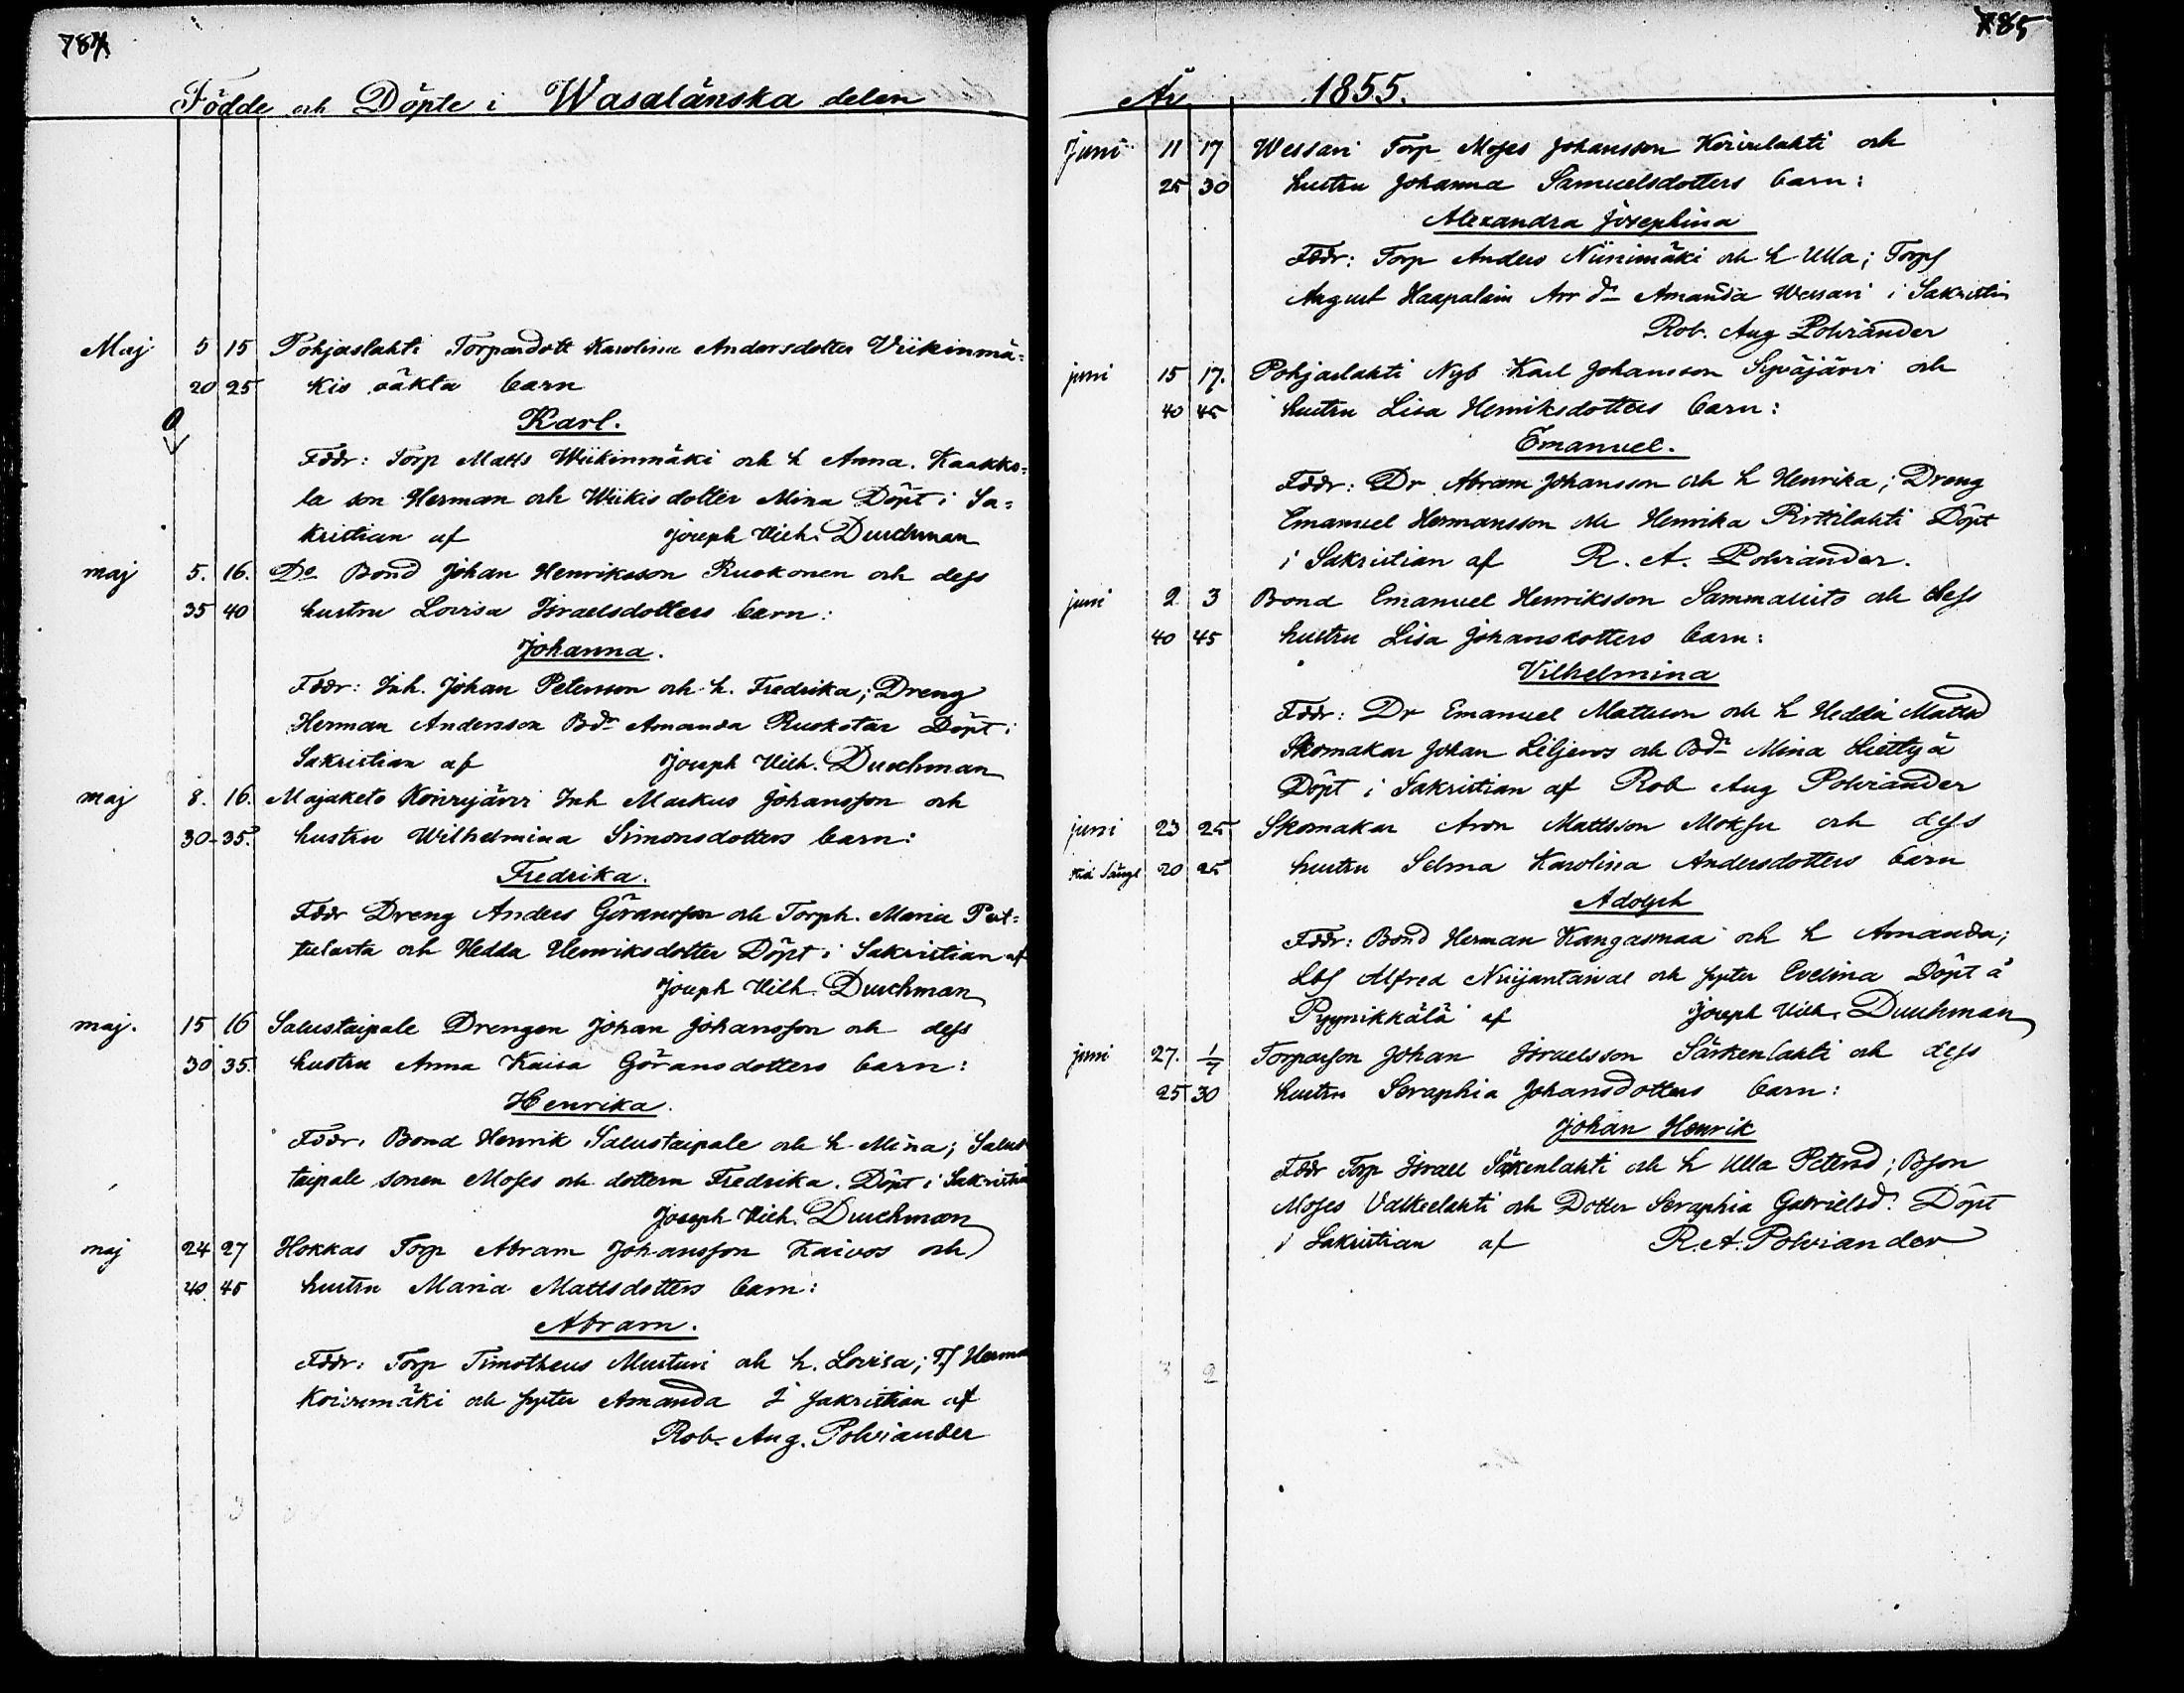 784
Födde och Döpte i Wasalänska delen
Maj 5 15 Pohjaslahti Torparedott Karolina Andersdotter Viikinmä-
20 25 kis oäkta barn
Karl.
Fddr: Torp Matts Wiikinmäki och h Anna. Kaakko-
la son Herman och Wiikis dotter Mina Döpt i Sa-
kristian af Joseph Vilh. Durchman
maj 5. 16. Do Bond Johan Henriksson Ruokonen och dess
35 40 hustru Lovisa Israelsdotters barn:
Johanna.
Fddr: Inh. Johan Petersson och h. Fredrika; Dreng
Herman Andersson Bdr Amanda Ruokotar Döpt i
Sakristian af Joseph Vilh. Durchman
maj 8. 16. Majaketo Koirejärvi Inh Markus Johansson och
30-35. hustru Wilhelmina Simonsdotters barn:
Fredrika.
Fddr Dreng Anders Göransson och Torph. Maria
och Hedda Henriksdotter Döpt i Sakristian af
Joseph Vilh. Durchman
maj. 15 16 Salustaipale Drengen Johan Johansson och dess
30 35. hustru Anna Kaisa Göransdotters barn:
Henrika.
Fddr. Bond Henrik Salustaipale och h Mina; Salus
taipale sonen Moses och dottern Fredrika. Döpt i Sakristia
Joseph Vilh. Durchman
maj 24 27 Hokkas Torp Abram Johansson Kaivos och
40. 45 hustru Maria Mattsdotters barn:
Abram.
Fddr: Torp Timotheus Musturi och h. Lovisa; Ts Herman
Koiremäki och syster Amanda I sakristian af
Rob. Aug. Polviander
785
År 1855.
Juni 11 17 Wessari Torp Moses Johansson Keiurlahti och
25 30 hustru Johanna Samuelsdotters barn:
Alexandra Josephina
Fddr: Torp Anders Niinimäki och h Ulla; Torps
August Haapalain Arr dr Amanda Wessari i Sakristin
Rob. Aug Polviander
juni 15 17. Pohjaslahti Nyb Karl Johansson Syväjärvi och
40 45 hustru Lisa Henriksdotters barn:
Emanuel.
Fddr: Dr Abram Johansson och h Henrika; Dreng
Emanuel Hermansson och Henrika Pirttilahti Döpt
i Sakristian af R. A. Polviander.
juni 2 3 Bond Emanuel Henriksson Sammalisto och dess
40 45 hustru Lisa Johansdotters barn:
Vilhelmina
Fddr: Dr Emanuel Mattsson och h Hedda Mattsd
Skomakar Johan Liljeros och Bdr Mina Liettyä
Döpt i Sakristian af Rob Aug Polviander
juni 23 25 Skomakar Aron Mattsson Moksu och dess
20 25 hustru Selma Karolina Andersdotters barn
Adolph
Fddr: Bond Herman Kangasmaa och h Amanda;
Alfred och syster Evelina Döpt å
Pyynikkälä af Joseph Vilh. Durchman
juni 27. 1/7 Torparson Johan Israelsson Särkenlahti och dess
25 30 hustru Seraphia Johansdotters barn:
Johan Henrik
Fddr Torp Israel Särkenlahti och h Ulla Petersd; Bson
Moses Valkeelahti och Dotter Seraphia Gabrielsd: Döpt
i Sakristian af R. A. Polviander
3 2